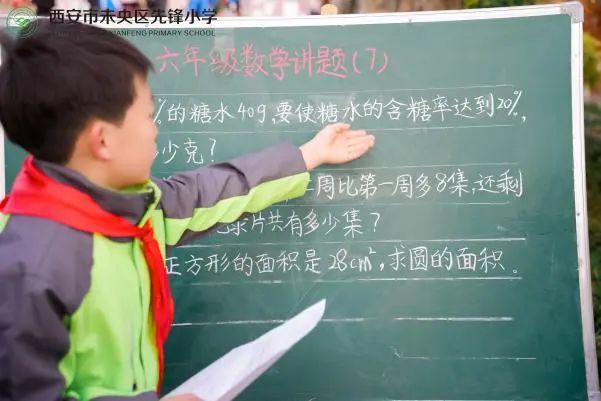 西安市未央区先锋小学
XIANFENG PRIMARY SCHOOL
六年级数学讲题(7)
%的糖水40g,要使糖水的含糖率达到20%,
少克?
二周比第一周多8集,还剩
片共有多少集?
正方形的面积是28cm²,求圆的面积。